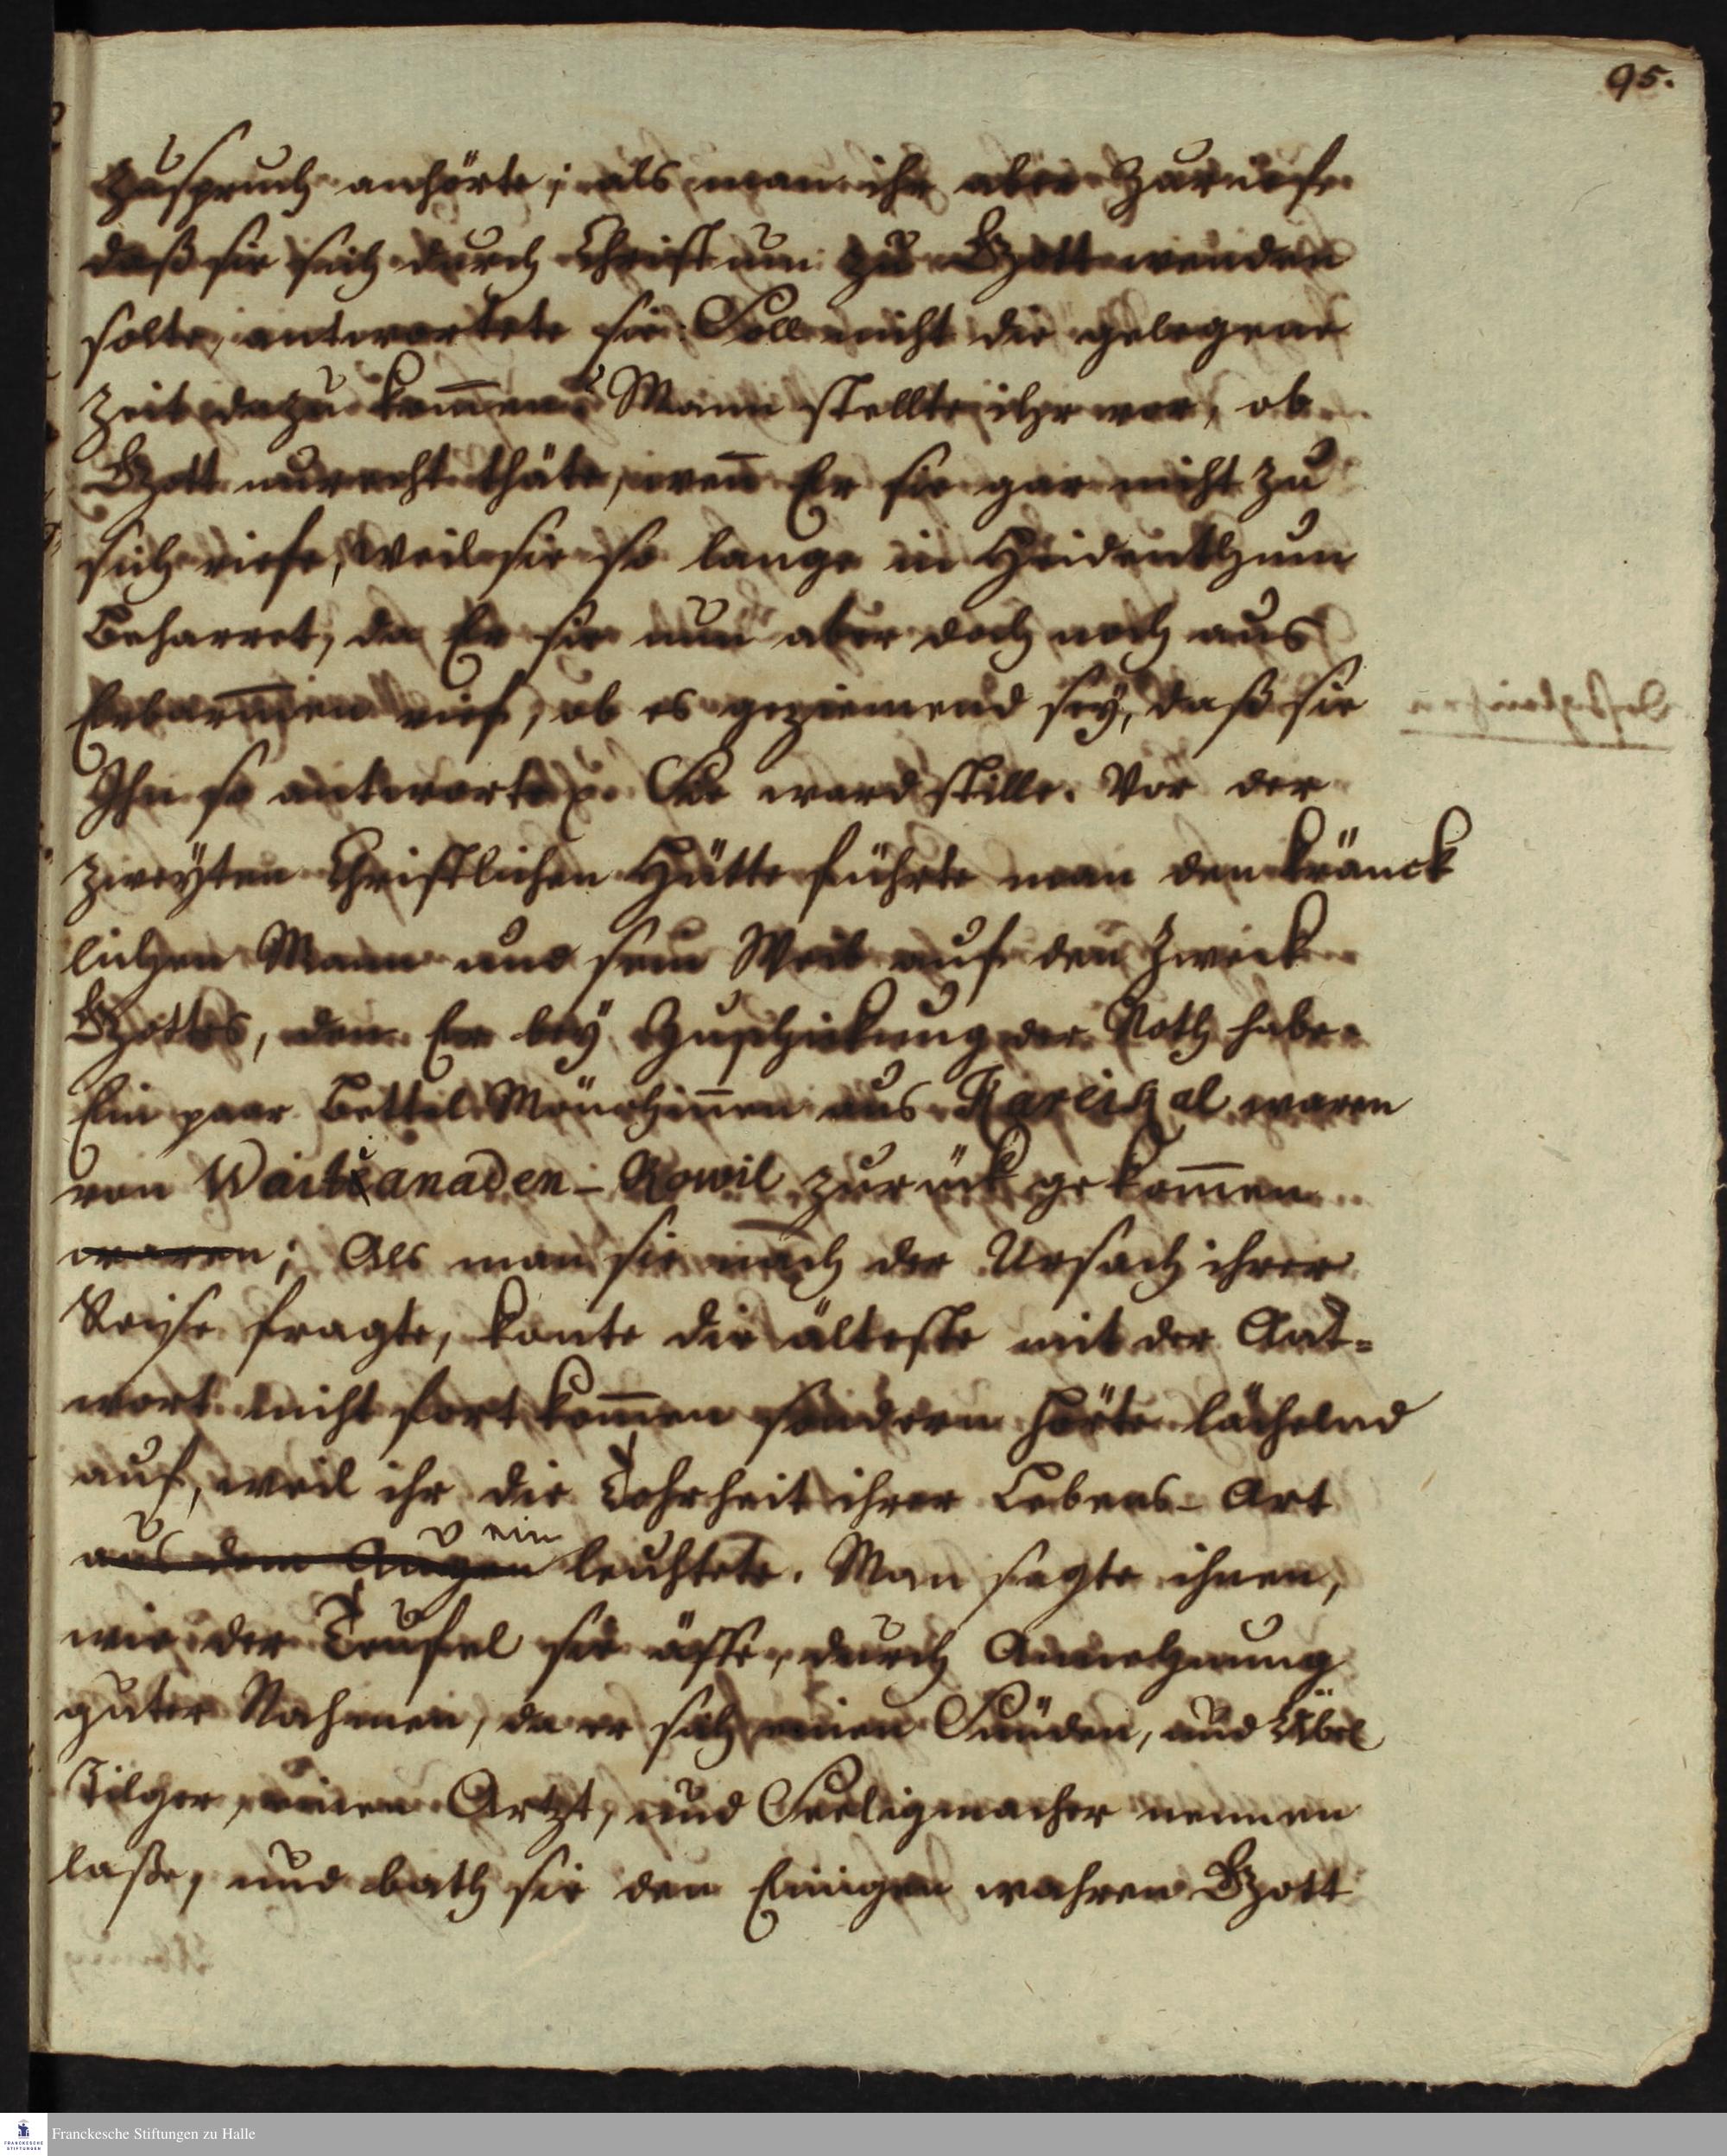 95.
Zuspruch anhörte; als man ihr aber zuriefe
daß sie sich durch Christum zu Gott wenden
solte, antwortete sie: Soll nicht die gelegene
Zeit dazu kom̄en? Mann stellte ihr vor, ob
Gott unrecht thäte, wen̄ Er sie gar nicht zu
sich riefe, weil sie so lange in Heidenthum
beharret, da Er sie nun aber doch noch aus
Erbarm̄en rief, ob es geziemend sey, daß sie
Ihn so antworte? Sie ward stille. Vor der
zweÿten Christlichen Hütte führte man den kränck
lichen Mann und sein Weib auf den Zweck
Gottes, den Er beÿ Zuschickung der Noth habe.
Ein paar Bettel-Mönchin̄en aus Kareikal waren
von Waitianaden-Kowil zurück gekom̄en
waren; Als man sie nach der Ursach ihrer
Reise fragte, konte die älteste mit der Ant=
wort nicht fort kom̄en sondern hörte lächelnd
auf, weil ihr die Tohrheit ihrer Lebens-Art
aus dem Augen ein leuchtete. Man sagte ihnen,
wie der Teufel sie äffe, durch Annehmung
guter Nahmen, da er sich einen Sünden, und Übel
Tilger, einen Artzt, und Seeligmacher nennen
laße, und bath sie den Einigen wahren Gott
Franckesche Stiftungen zu Halle